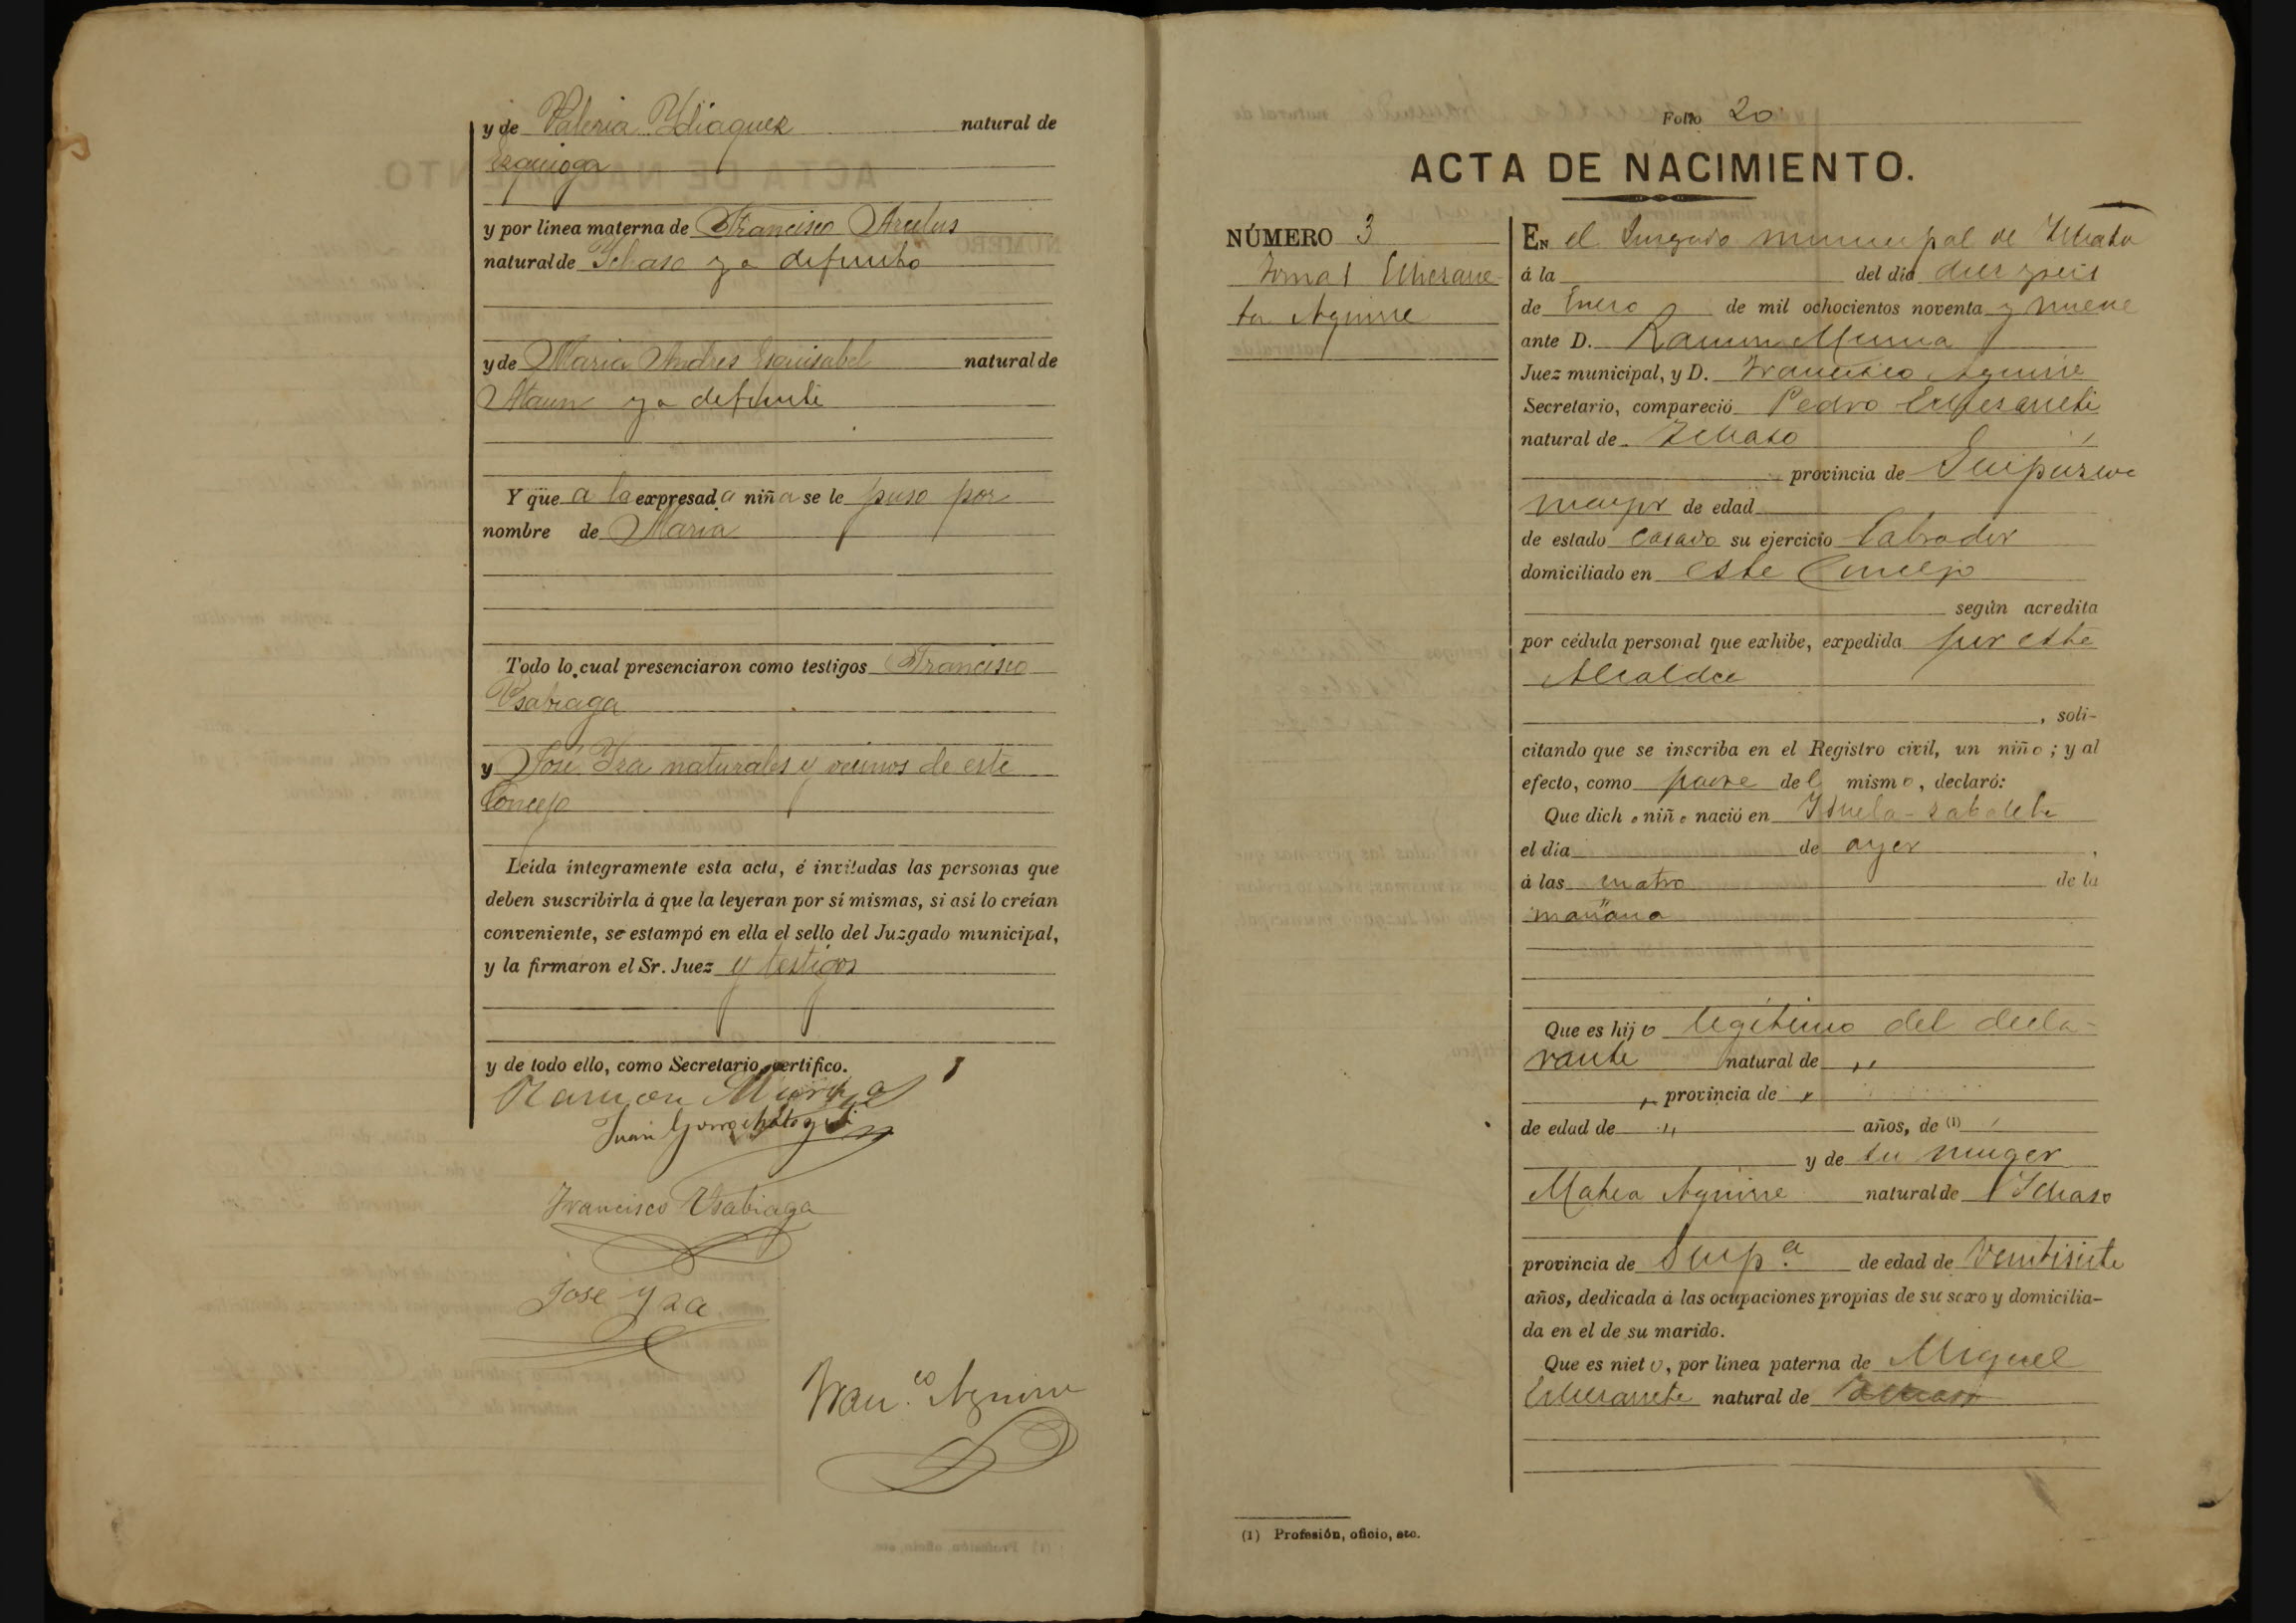 y de Valeria Ydiaquez natural de
Ezquioga
y por línea materna de Francisco Arcelus
natural de Ichaso ya difunto
y de Maria Andres Esquisabel natural de
Ataun ya difunta
Y que a la expresada niña se le puso por
nombre de Maria
Todo lo cual presenciaron como testigos Francisco
Usabiaga
y José Yza naturales y vecinos de este
Concejo
Leída íntegramente esta acta, é invitadas las personas que
deben suscribirla á que la leyeran por sí mismas, si así lo creían
conveniente, se estampó en ella el sello del Juzgado municipal,
y la firmaron el Sr. Juez y testigos
y de todo ello, como Secretario, certifico.
Ramon Murua
Juan Gorrochategui
Francisco Usabiaga
Jose Yza
Fran.co Aguirre
Folio 20
ACTA DE NACIMIENTO.
NÚMERO 3
Tomas Echezarre-
ta Aguirre
EN el Juzgado municipal de Ichaso
á la del dia diez y seis
de Enero de mil ochocientos noventa y nueve
ante D. Ramon Murua
Juez municipal, y D. Francisco Aguirre
Secretario, compareció Pedro Echezarreta
natural de Ichaso
provincia de Guipuzcoa
mayor de edad
de estado casado su ejercicio labrador
domiciliado en este Concejo
según acredita
por cédula personal que exhibe, expedida por esta
Alcaldia
, soli-
citando que se inscriba en el Registro civil, un niño; y al
efecto, como padre del mismo, declaró:
Que dicho niño nació en
el día de ayer
á las cuatro de la
mañana
Que es hijo legitimo del decla-
rante natural de ,,
,, provincia de ,,
de edad de ,, años, de (1)
y de su muger
Matea Aguirre natural de Ichaso
provincia de Guip.a de edad de veintisiete
años, dedicada á las ocupaciones propias de su sexo y domicilia-
da en el de su marido.
Que es nieto, por línea paterna de Miguel
Echezarreta natural de Ichaso
(1) Profesión, oficio, etc.